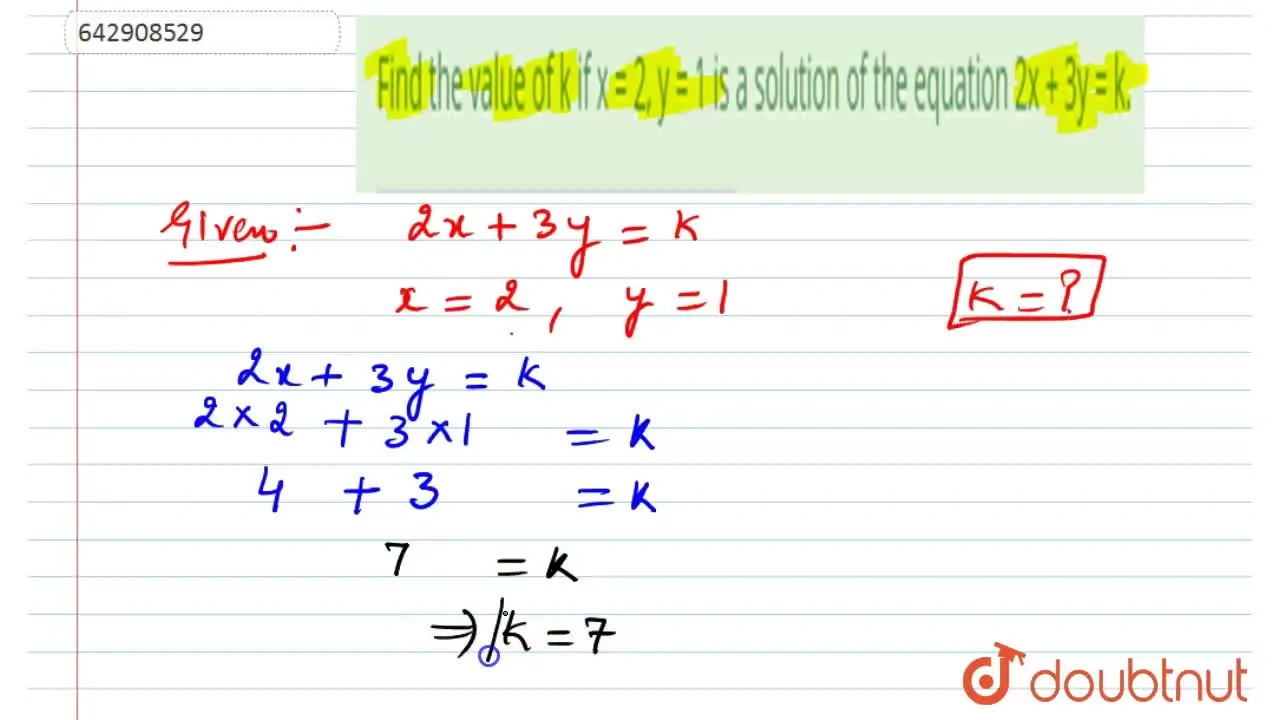 642908529
Find the value of k if x = 2, y = 1 is a solution of the equation 2x + 3y = k.
Given :- 2x + 3y = k
x = 2 , y = 1 k = ?
2x + 3y = k
2 × 2 + 3 × 1 = k
4 + 3 = k
7 = k
⇒ k = 7
doubtnut